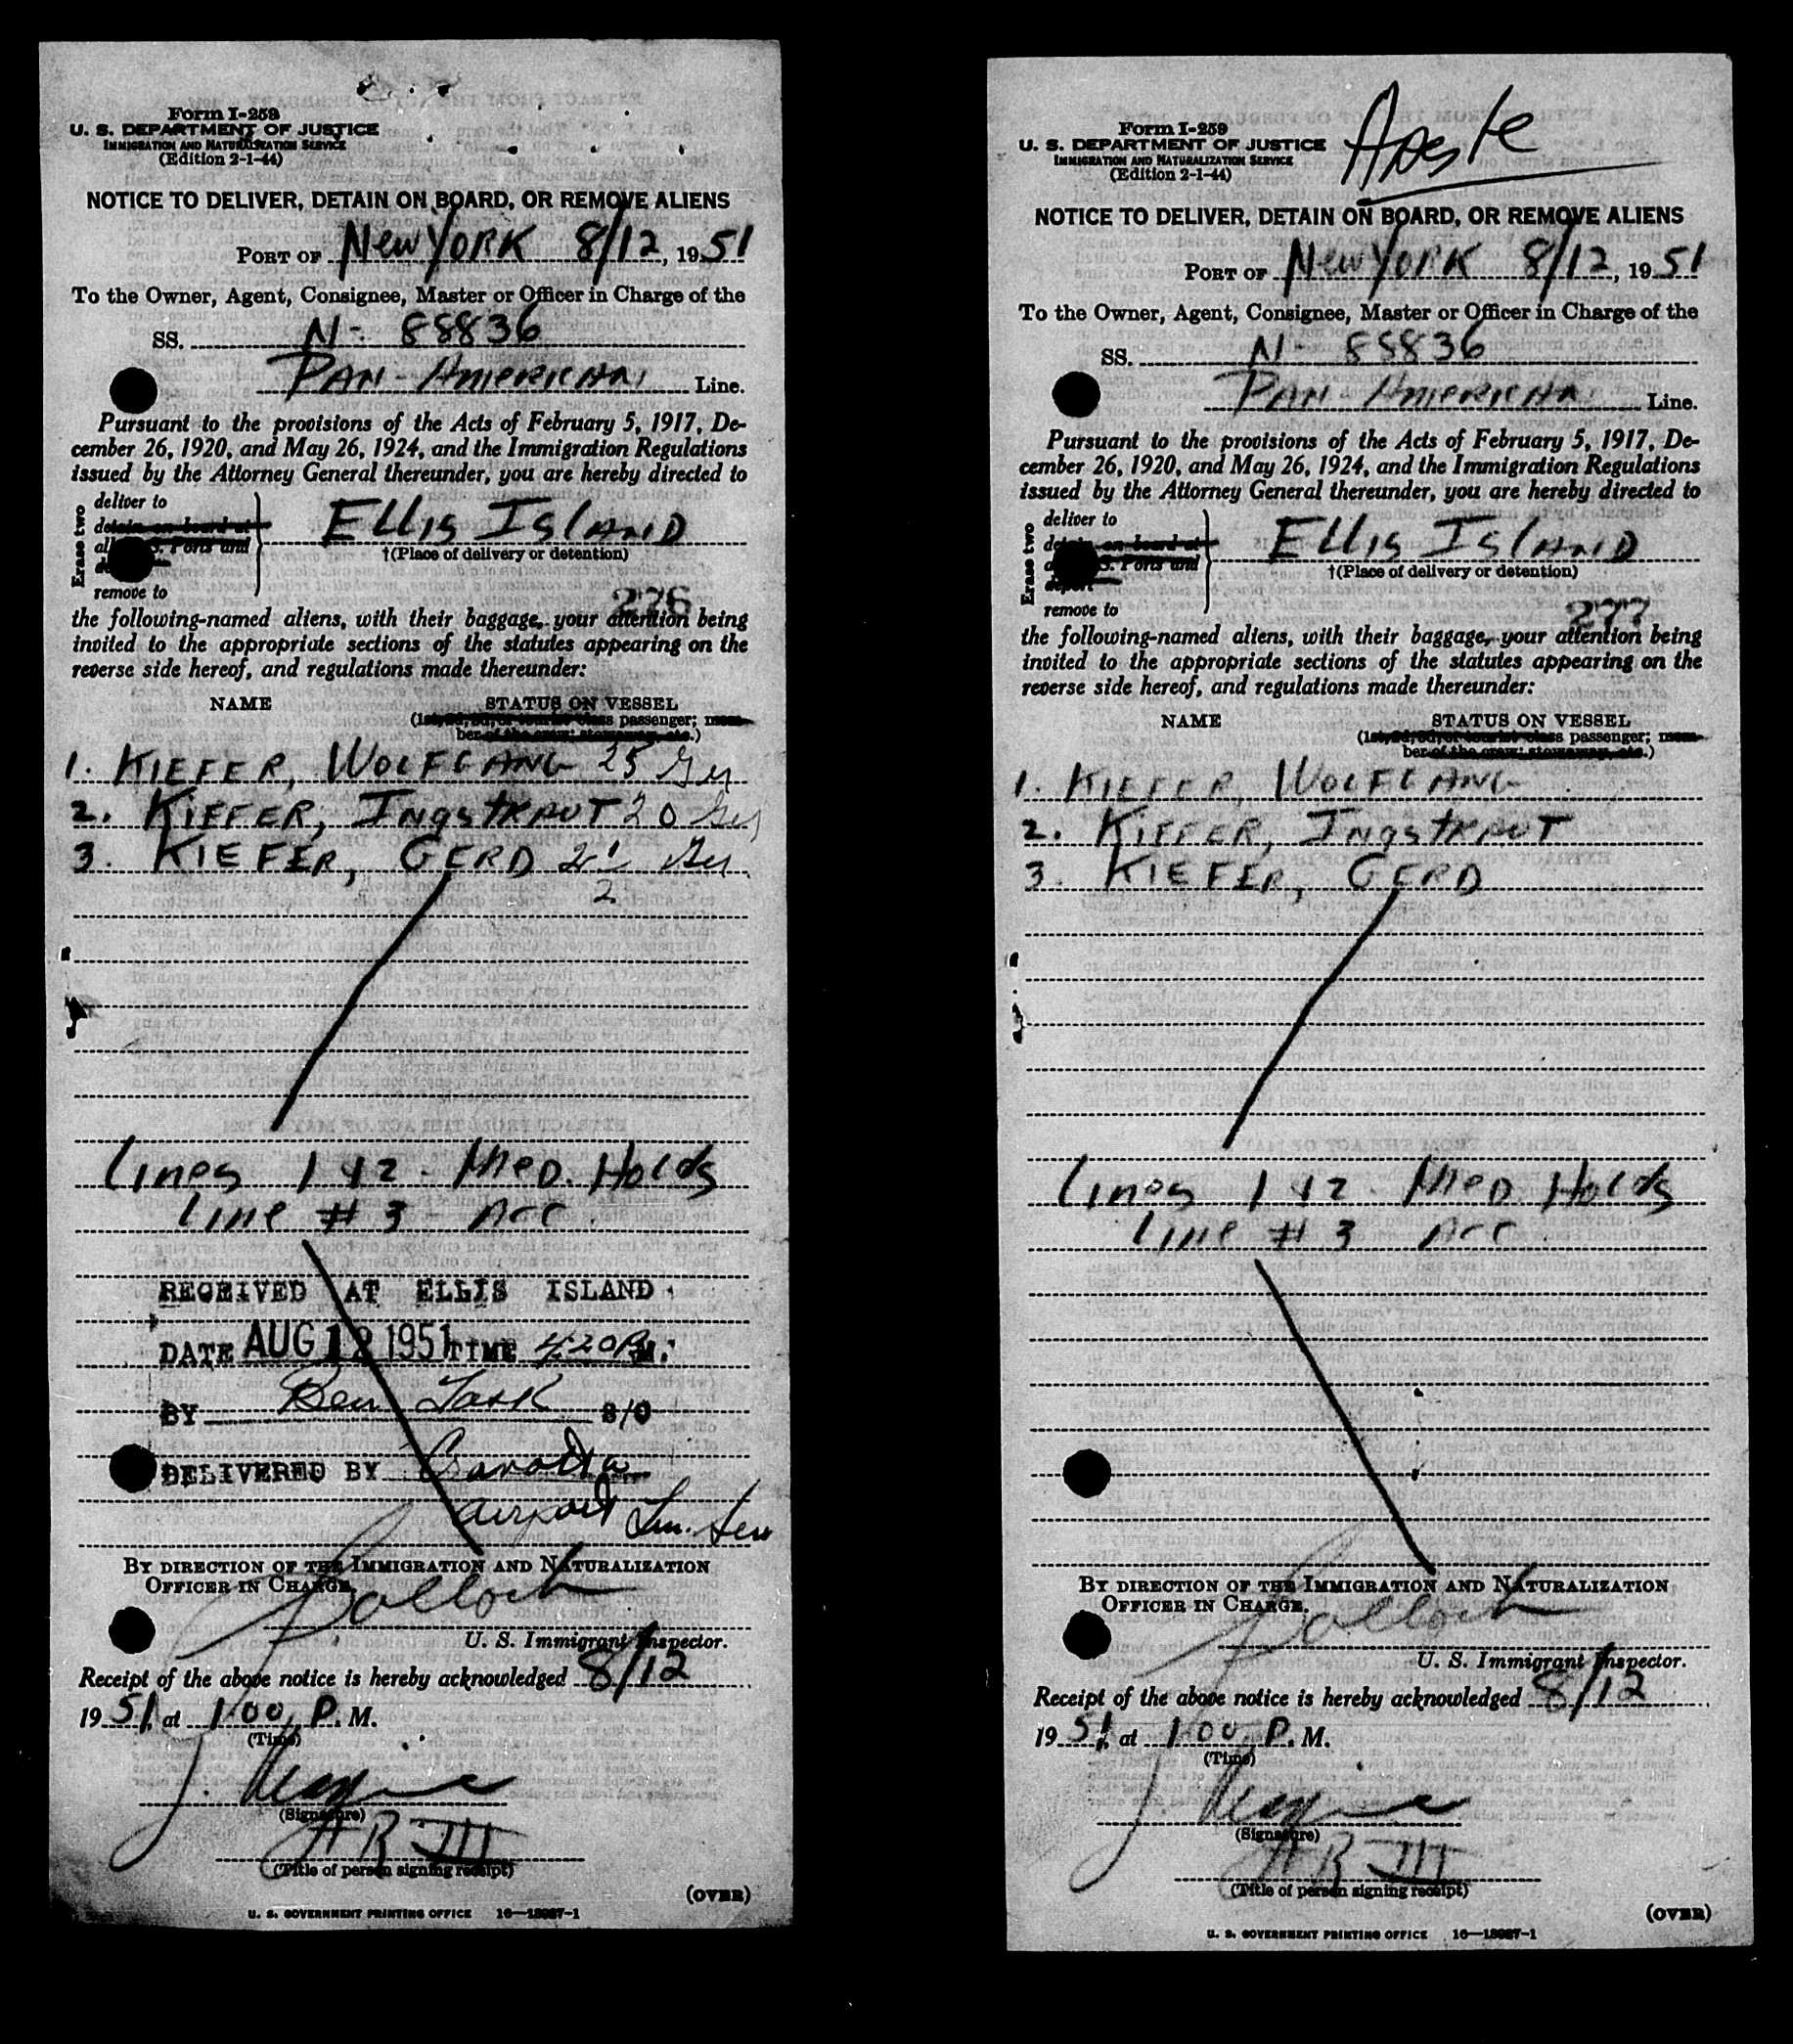 Form I-259
U. S. DEPARTMENT OF JUSTICE
IMMIGRATION AND NATURALIZATION SERVICE
(Edition 2-1-44)
NOTICE TO DELIVER, DETAIN ON BOARD, OR REMOVE ALIENS
PORT OF New YORK 8/12, 1951
To the Owner, Agent, Consignee, Master or Officer in Charge of the
SS. N- 88836
PAN-AMERICAN Line.
Pursuant to the provisions of the Acts of February 5, 1917, De-
cember 26, 1920, and May 26, 1924, and the Immigration Regulations
issued by the Attorney General thereunder, you are hereby directed to
Erase two
deliver to
detain on board at
S. Ports and
remove to
ELLIS ISLAND
†(Place of delivery or detention)
276
the following-named aliens, with their baggage, your attention being
invited to the appropriate sections of the statutes appearing on the
reverse side hereof, and regulations made thereunder:
NAME STATUS ON VESSEL
(1st, 2d, 3d, or tourist class passenger; mem-
ber of the crew; stowaway, etc.)
1. KIEFER, WOLFGANG 25 Ger
2. KIEFER, INGSTRAUT 20 Ger
3. KIEFER, GERD 2 1/2 Ger
Lines 1 & 2 - MED. Holds
Line # 3 - Acc.
RECEIVED AT ELLIS ISLAND
DATE AUG 12 1951 TIME 4:20 P.M.
BY Ben Task S/O
DELIVERED BY
airport
BY DIRECTION OF THE IMMIGRATION AND NATURALIZATION
OFFICER IN CHARGE.
Pollock
U. S. Immigrant Inspector.
Receipt of the above notice is hereby acknowledged 8/12
1951, at 1:00 P. M.
(Time)
J.
(Signature)
(Title of person signing receipt)
(OVER)
U. S. GOVERNMENT PRINTING OFFICE 16—13987-1
Form I-259
U. S. DEPARTMENT OF JUSTICE
IMMIGRATION AND NATURALIZATION SERVICE
(Edition 2-1-44)
NOTICE TO DELIVER, DETAIN ON BOARD, OR REMOVE ALIENS
PORT OF New YORK 8/12, 1951
To the Owner, Agent, Consignee, Master or Officer in Charge of the
SS. N- 88836
PAN AMERICAN Line.
Pursuant to the provisions of the Acts of February 5, 1917, De-
cember 26, 1920, and May 26, 1924, and the Immigration Regulations
issued by the Attorney General thereunder, you are hereby directed to
Erase two
deliver to
on board at
S. Ports and
deport
remove to
ELLIS ISLAND
†(Place of delivery or detention)
277
the following-named aliens, with their baggage, your attention being
invited to the appropriate sections of the statutes appearing on the
reverse side hereof, and regulations made thereunder:
NAME STATUS ON VESSEL
(1st, 2d, 3d, or tourist class passenger; mem-
ber of the crew; stowaway, etc.)
1. KIEFER, WOLFGANG
2. KIEFER, INGSTRAUT
3. KIEFER, GERD
Lines 1 & 2 - MED. Holds
Line # 3 Acc
BY DIRECTION OF THE IMMIGRATION AND NATURALIZATION
OFFICER IN CHARGE.
Pollock
U. S. Immigrant Inspector.
Receipt of the above notice is hereby acknowledged 8/12
1951, at 1:00 P. M.
(Time)
J.
(Signature)
(Title of person signing receipt)
(OVER)
U. S. GOVERNMENT PRINTING OFFICE 16—13987-1